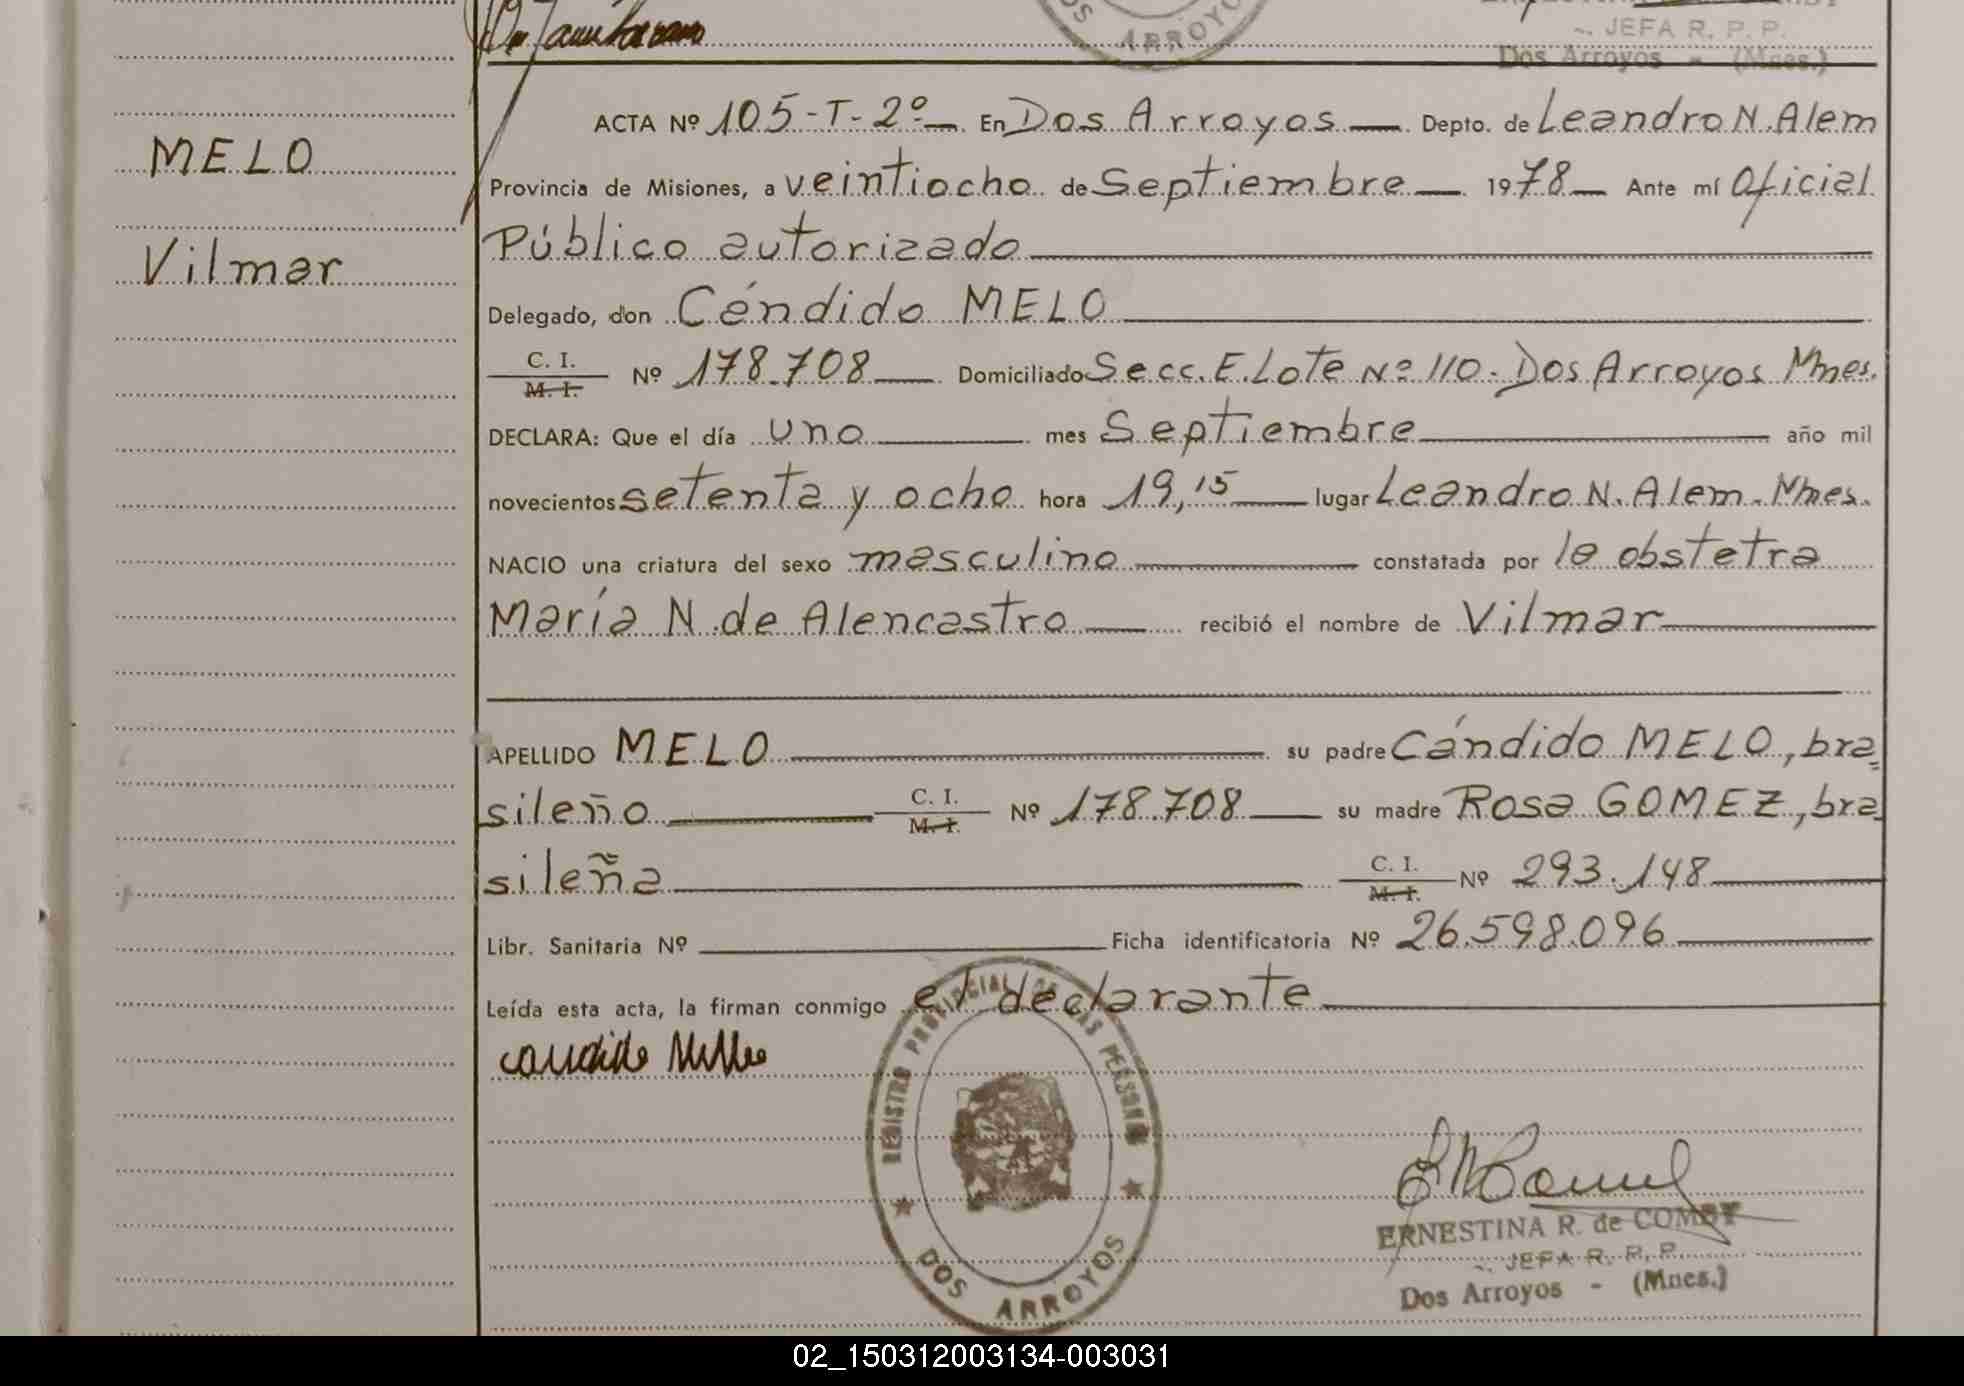 ARROYO
JEFA R. P. P.
Dos Arroyos - (Mnes.)
MELO
Vilmar
ACTA Nº 105-T-2º— En Dos Arroyos — Depto. de Leandro N. Alem
Provincia de Misiones, a veintiocho de Septiembre — 1978— Ante mí Oficial
Público autorizado
Delegado, don Cándido MELO
C. I.
M. I. Nº 178.708 — Domiciliado Secc. E. Lote Nº 110. Dos Arroyos Mnes.
DECLARA: Que el día uno — mes Septiembre — año mil
novecientos setenta y ocho hora 19,15 — lugar Leandro N. Alem. Mnes.
NACIO una criatura del sexo masculino — constatada por la obstetra
María N. de Alencastro — recibió el nombre de Vilmar
APELLIDO MELO — su padre Cándido MELO, bra
sileño — C. I. M. I. Nº 178.708 — su madre Rosa GOMEZ, bra
sileña — C. I. M. I. Nº 293.148
Libr. Sanitaria Nº — Ficha identificatoria Nº 26.598.096
Leída esta acta, la firman conmigo el declarante
REGISTRO PROVINCIAL DE LAS PERSONAS
DOS ARROYOS
ERNESTINA R. de COMBY
JEFA R. P. P.
Dos Arroyos - (Mnes.)
02_150312003134-003031